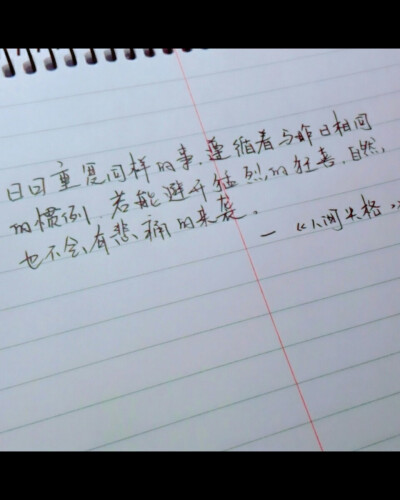 日日重复同样的事，遵循着与昨日相同
的惯例，若能避开猛烈的狂喜，自然
也不会有悲痛的来袭。
—《人间失格》